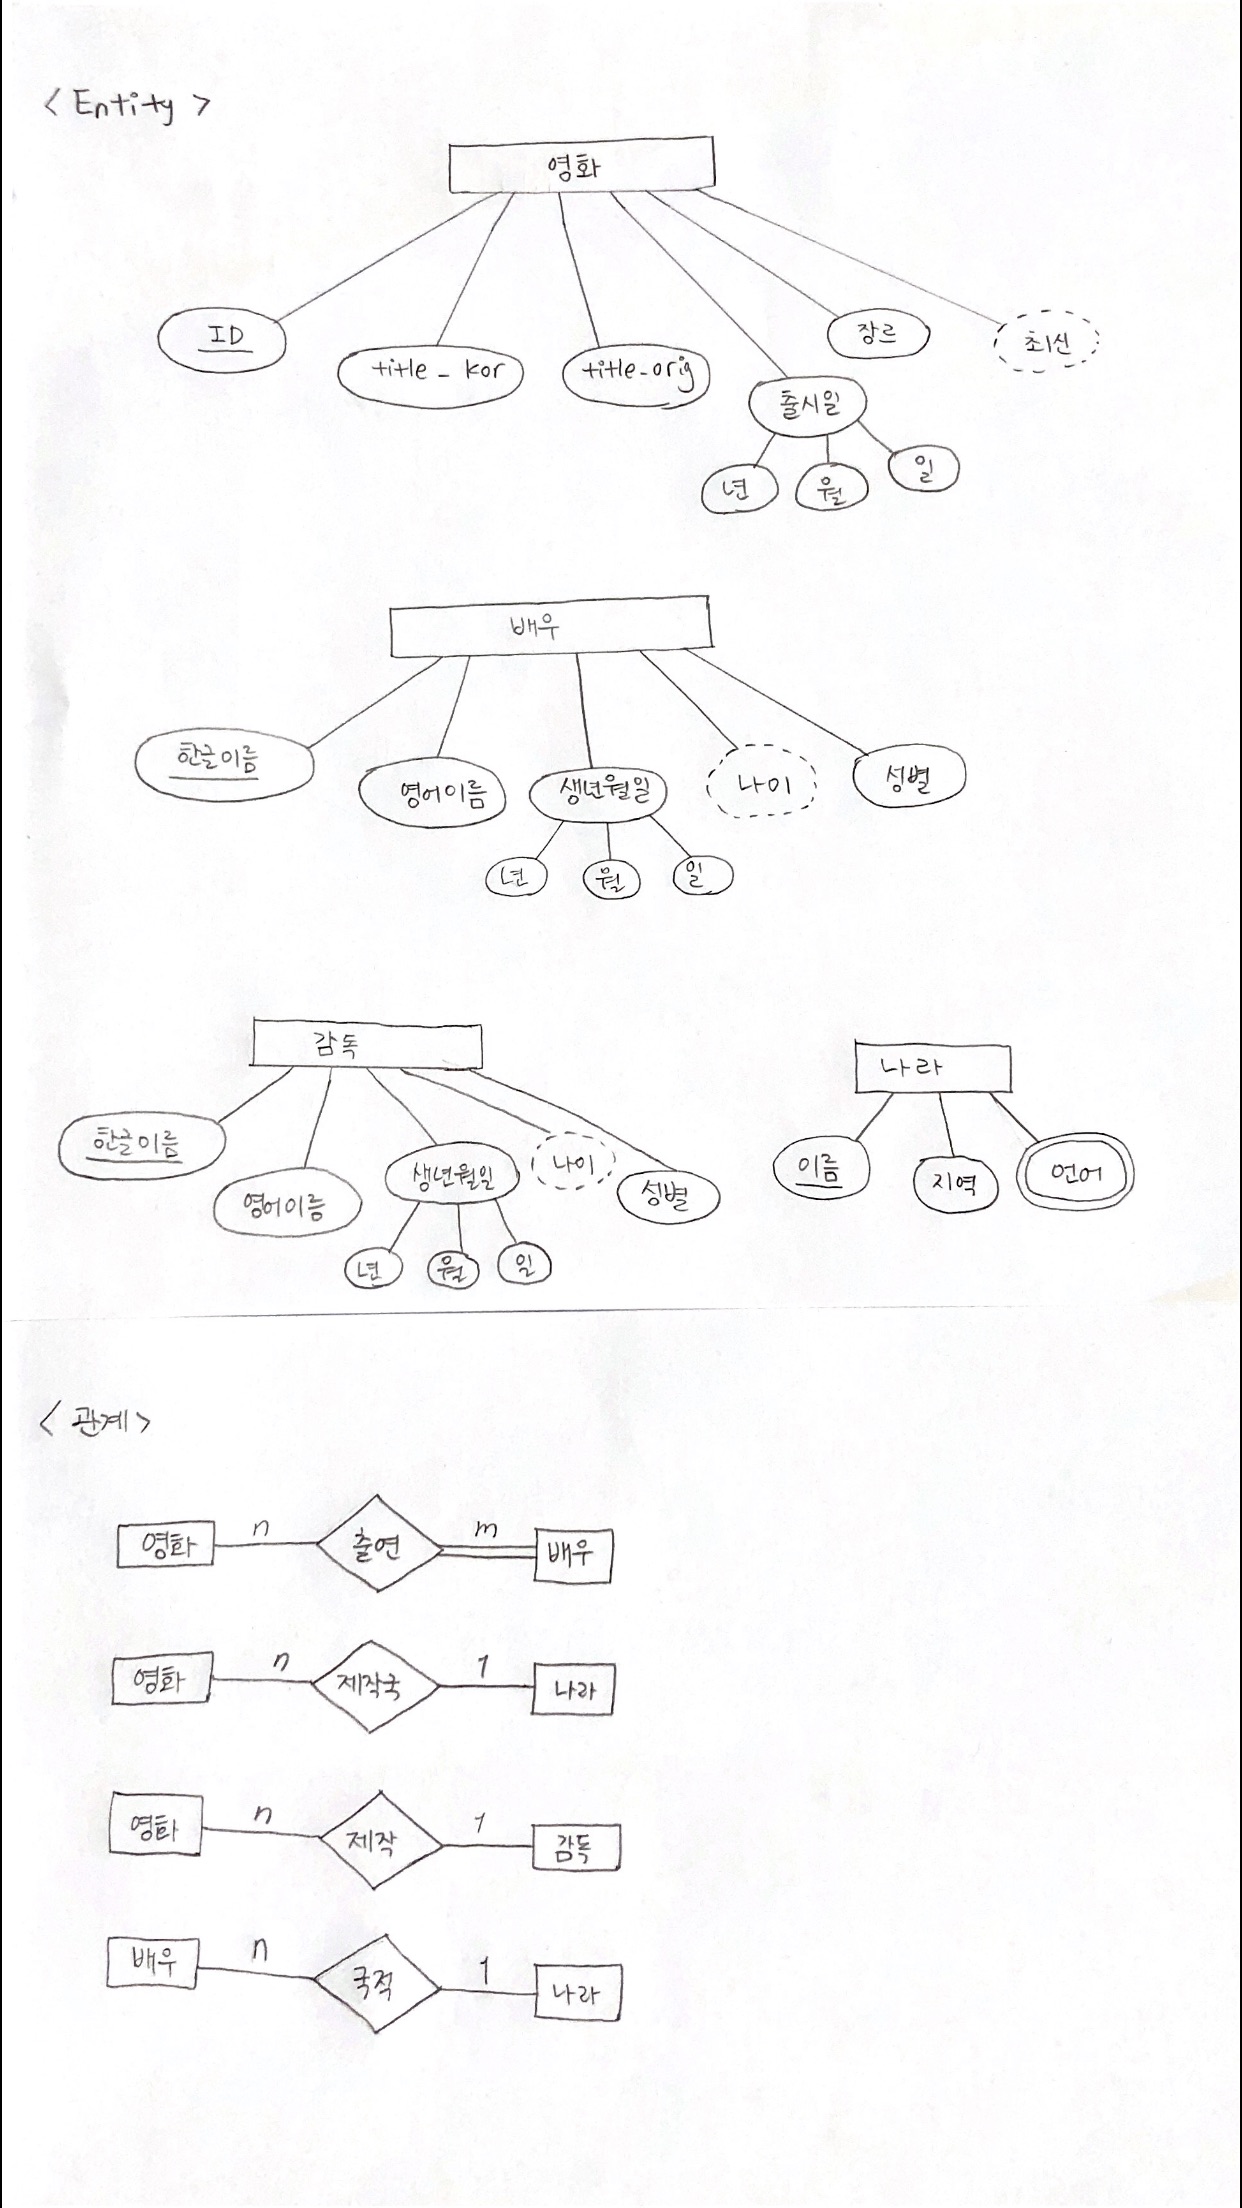 < Entity >
영화
ID
title_kor
title_orig
출시일
장르
최신
년
월
일
배우
한글이름
영어이름
생년월일
나이
성별
년
월
일
감독
한글이름
영어이름
생년월일
나이
성별
년
월
일
나라
이름
지역
언어
< 관계 >
영화 n 출연 m 배우
영화 n 제작국 1 나라
영화 n 제작 1 감독
배우 n 국적 1 나라